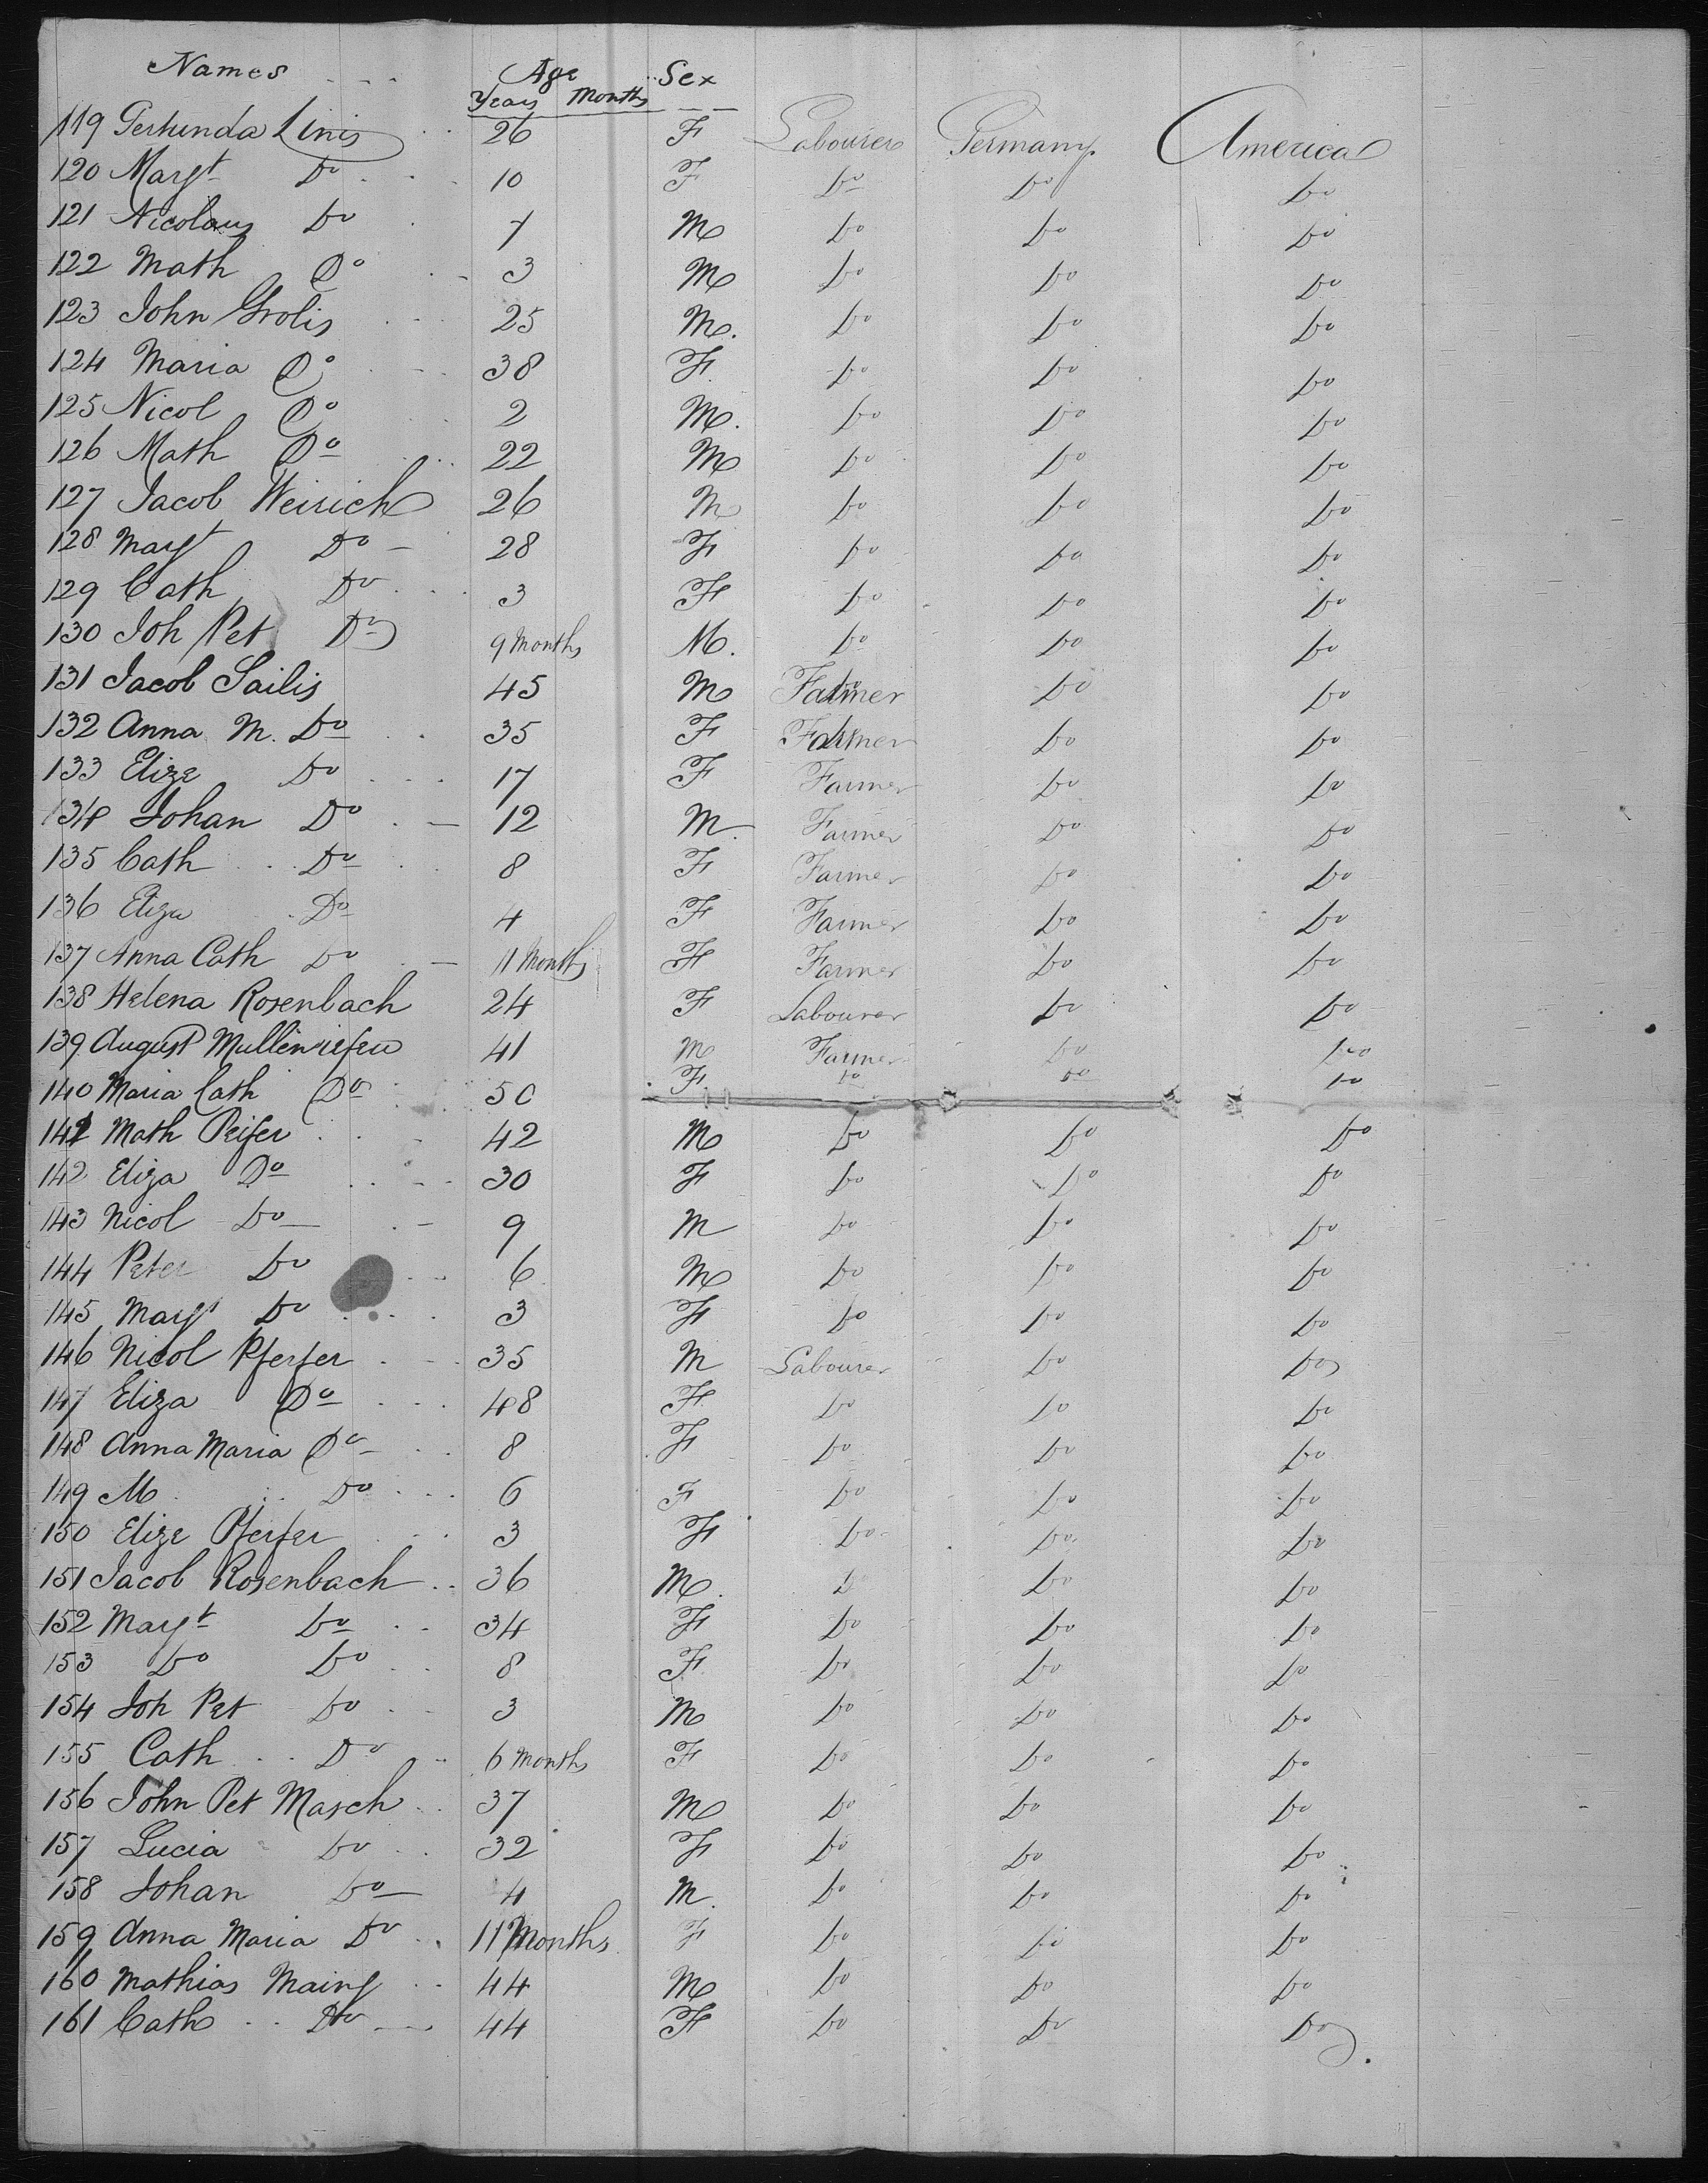 Names Age Sex
Years Months
119 Gertrunda Linis 26 F Labourer Germany America
120 Margt Do 10 F Do Do Do
121 Nicolaus Do 7 M Do Do Do
122 Math Do 3 M Do Do Do
123 John Grolis 25 M. Do Do Do
124 Maria Do 38 F. Do Do Do
125 Nicol Do 2 M. Do Do Do
126 Math Do 22 M Do Do Do
127 Jacob Weirich 26 M Do Do Do
128 Margt Do 28 F Do Do Do
129 Cath Do 3 F Do Do Do
130 Joh Pet Do 9 Months M. Do Do Do
131 Jacob Sailis 45 M Farmer Do Do
132 Anna M. Do 35 F Farmer Do Do
133 Elize Do 17 F Farmer Do Do
134 Johan Do 12 M. Farmer Do Do
135 Cath Do 8 F Farmer Do Do
136 Eliza Do 4 F Farmer Do Do
137 Anna Cath Do 11 Months F Farmer Do Do
138 Helena Rosenbach 24 F Labourer Do Do
139 August 41 M Farmer Do Do
140 Maria Cath Do 50 F. Do Do Do
141 Math Peifer 42 M Do Do Do
142 Eliza Do 30 F Do Do Do
143 Nicol Do 9 M Do Do Do
144 Peter Do 6 M Do Do Do
145 Margt Do 3 F Do Do Do
146 Nicol Pfeifer 35 M Labourer Do Do
147 Eliza Do 48 F. Do Do Do
148 Anna Maria Do 8 F Do Do Do
149 M Do 6 F Do Do Do
150 Elize Pfeifer 3 F Do Do Do
151 Jacob Rosenbach 36 M. Do Do Do
152 Margt Do 34 F Do Do Do
153 Do Do 8 F. Do Do Do
154 Joh Pet Do 3 M Do Do Do
155 Cath Do 6 Months F Do Do Do
156 John Pet Masch 37 M Do Do Do
157 Lucia Do 32 F Do Do Do
158 Johan Do 4 M. Do Do Do
159 Anna Maria Do 11 Months F Do Do Do
160 Mathias 44 M Do Do Do
161 Cath Do 44 F Do Do Do